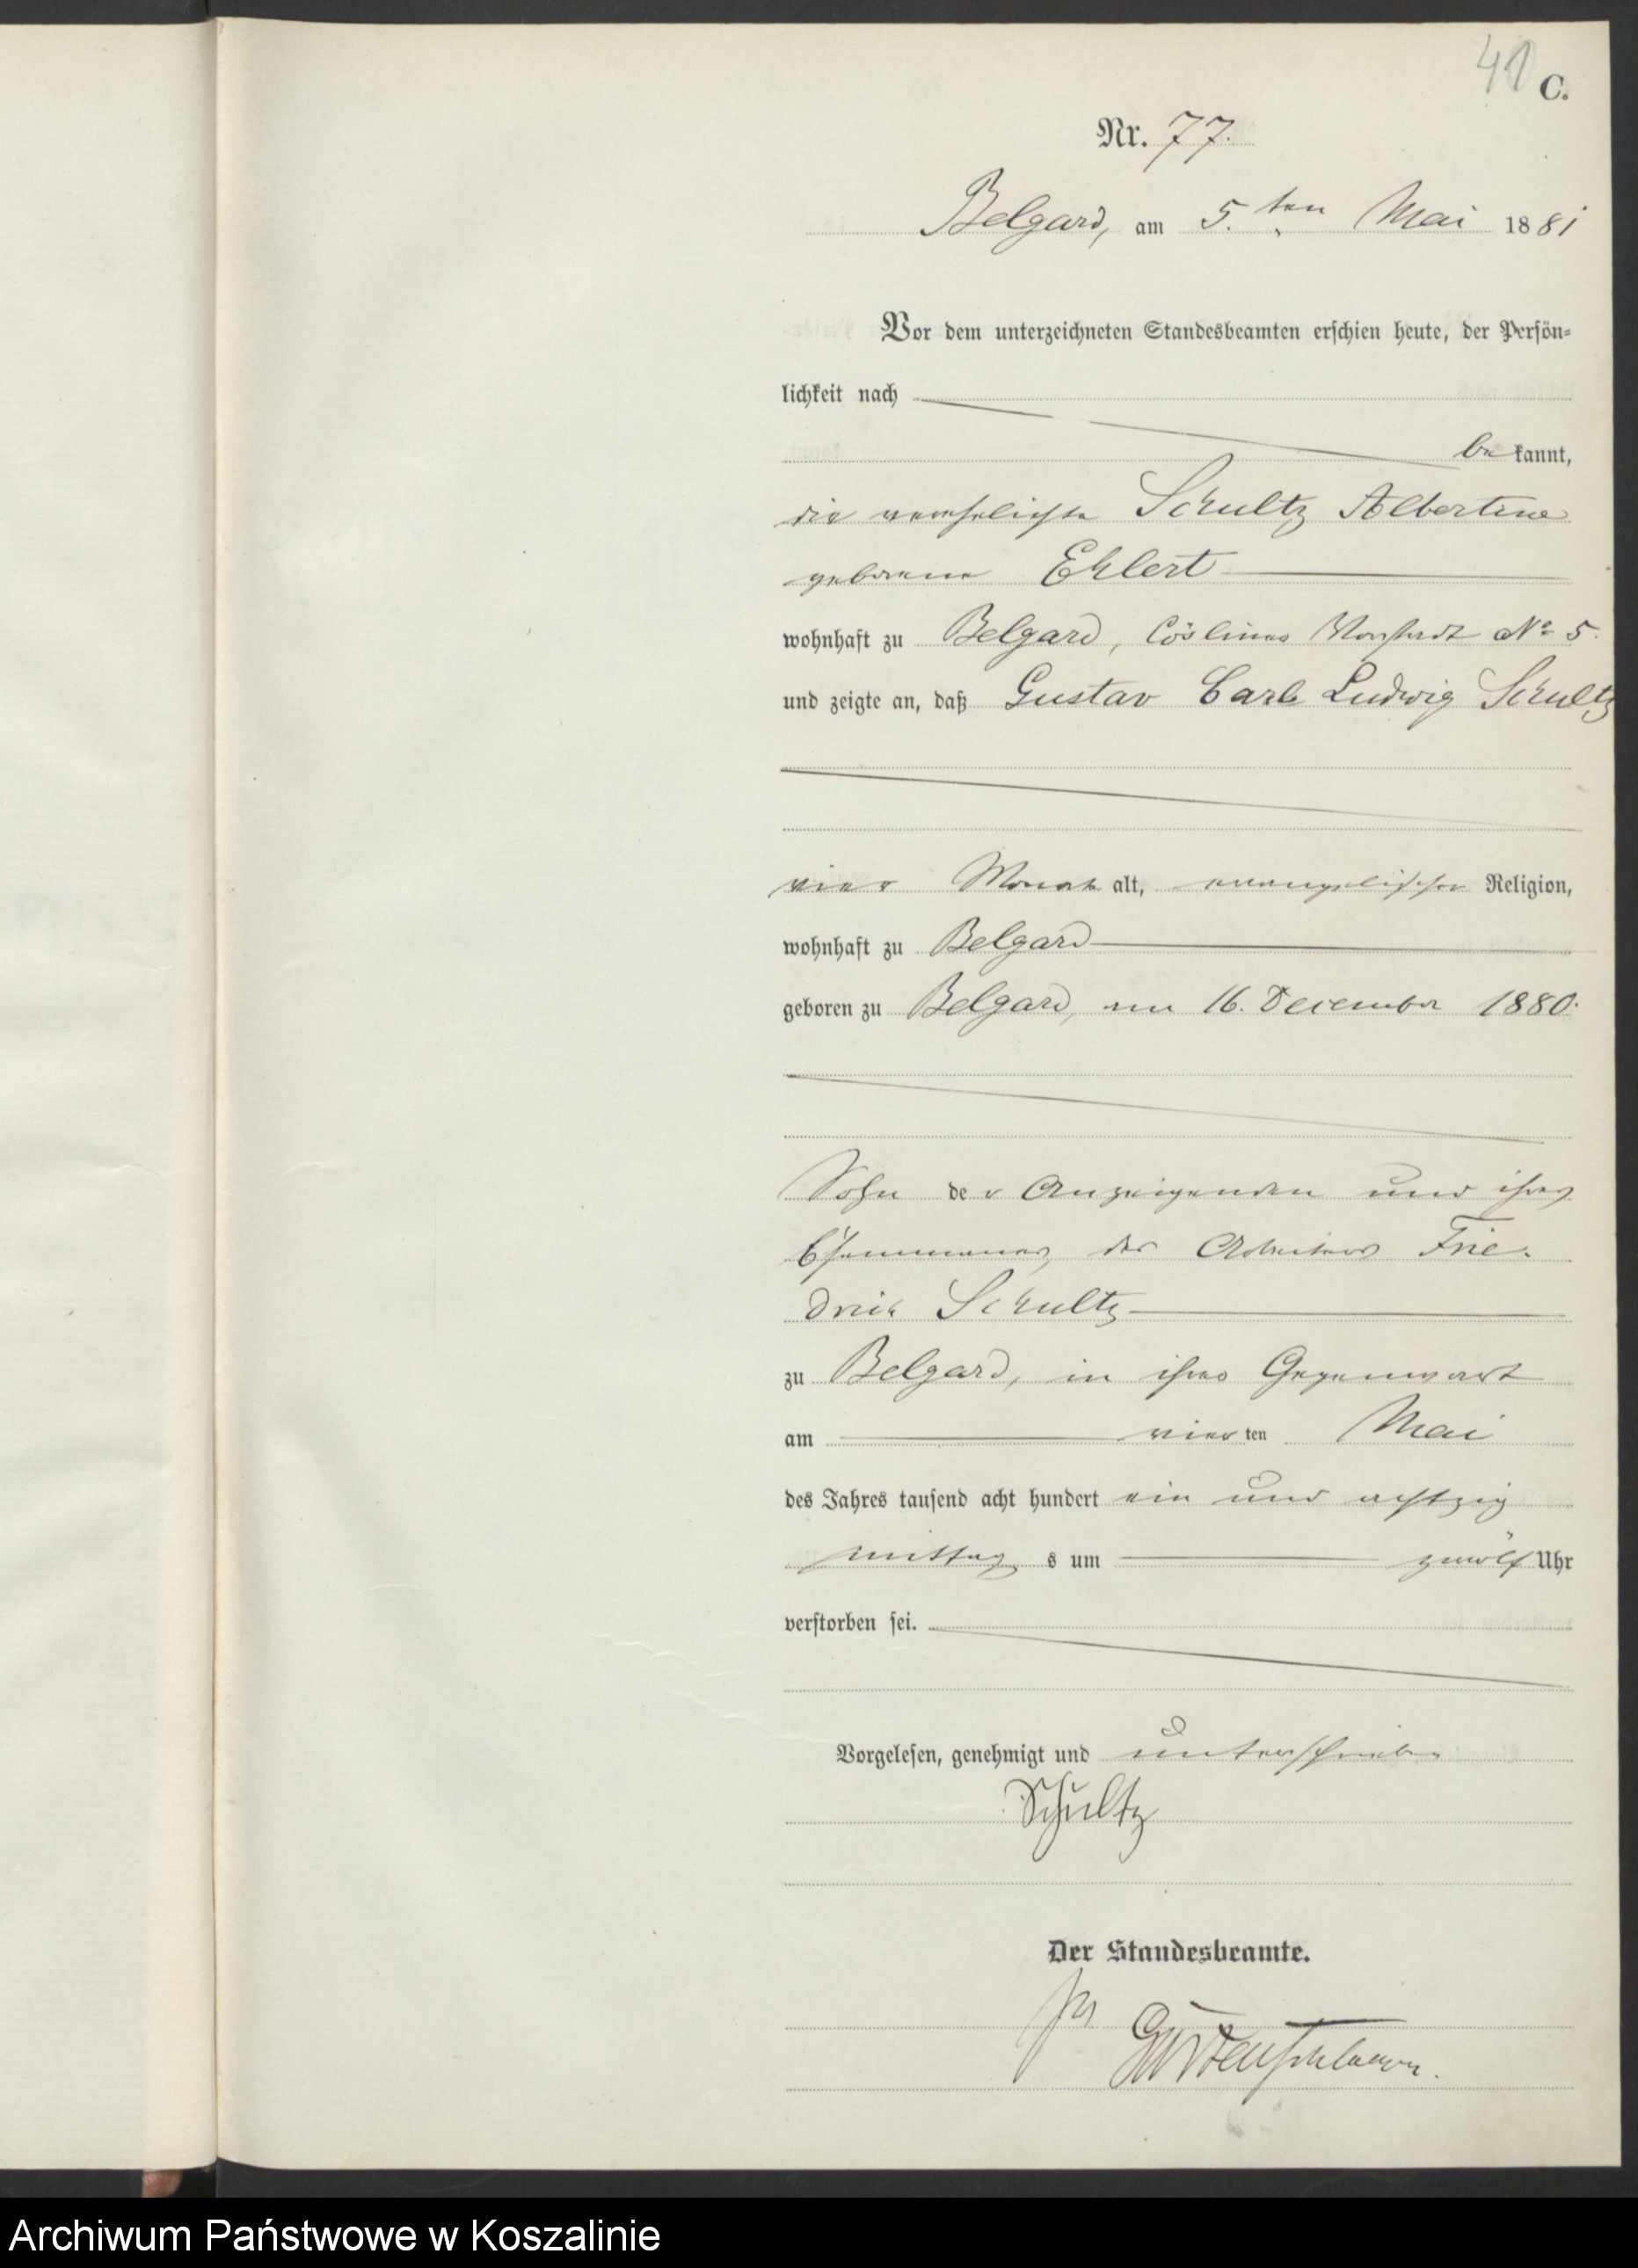 41 C.
Nr. 77.
Belgard, am 5. ten Mai 1881
Vor dem unterzeichneten Standesbeamten erschien heute, der Persön-
lichkeit nach
bekannt,
die verehelichte Schultz Albertine
geborene Ehlert
wohnhaft zu Belgard, Cösliner Vorstadt No 5.
und zeigte an, daß Gustav Carl Ludwig Schultz
vier Monate alt, evangelischer Religion,
wohnhaft zu Belgard
geboren zu Belgard, am 16. December 1880.
Sohn der Anzeigenden und ihres
Ehemannes, des Arbeiters Frie-
drich Schultz
zu Belgard, in ihrer Gegenwart
am vierten Mai
des Jahres tausend acht hundert ein und achtzig
mittags um zwölf Uhr
verstorben sei.
Vorgelesen, genehmigt und unterschrieben
Schultz
Der Standesbeamte.
Archiwum Państwowe w Koszalinie